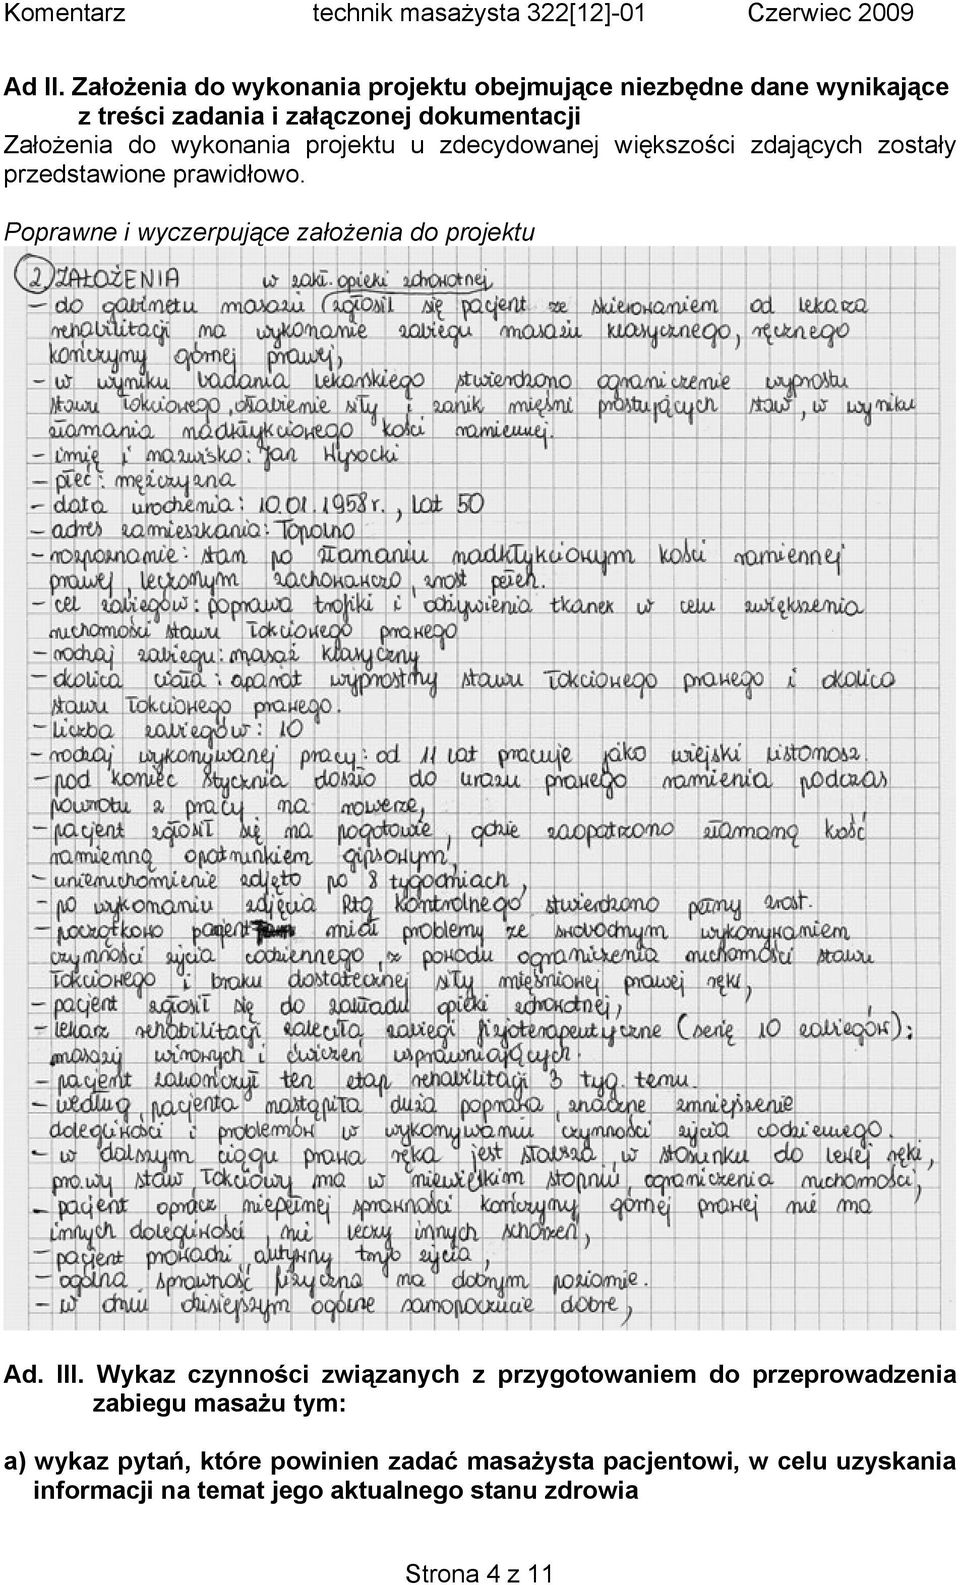 Komentarz technik masażysta 322[12]-01 Czerwiec 2009
Ad II. Założenia do wykonania projektu obejmujące niezbędne dane wynikające
z treści zadania i załączonej dokumentacji
Założenia do wykonania projektu u zdecydowanej większości zdających zostały
przedstawione prawidłowo.
Poprawne i wyczerpujące założenia do projektu
2) ZAŁOŻENIA w zakł. opieki zdrowotnej
- do gabinetu masażu zgłosił się pacjent ze skierowaniem od lekarza
rehabilitacji na wykonanie zabiegu masażu klasycznego, ręcznego
kończymy górnej prawej,
- w wyniku badania lekarskiego stwierdzono ograniczenie wyprostu
stawu łokciowego, osłabienie siły i zanik mięśni prostujących staw, w wyniku
złamania nadkłykciowego kości ramiennej.
- imię i nazwisko: Jan Wysocki
- płeć: mężczyzna
- data urodzenia: 10.01.1958r., lat 50
- adres zamieszkania: Topolno
- rozpoznanie: stan po złamaniu nadkłykciowym kości ramiennej
prawej, leczonym zachowawczo, zrost pełen.
- cel zabiegów: poprawa trofiki i odżywienia tkanek w celu zwiększenia
ruchomości stawu łokciowego prawego
- rodzaj zabiegu: masaż klasyczny
- okolica ciała: aparat wyprostny stawu łokciowego prawego i okolica
stawu łokciowego prawego.
- liczba zabiegów: 10
- rodzaj wykonywanej pracy: od 11 lat pracuje jako wiejski listonosz.
- pod koniec stycznia doszło do urazu prawego ramienia podczas
powrotu z pracy na rowerze,
- pacjent zgłosił się na pogotowie, gdzie zaopatrzono złamaną kość
ramienną opatrunkiem gipsowym,
- unieruchomienie zdjęto po 8 tygodniach,
- po wykonaniu zdjęcia Rtg kontrolnego stwierdzono pełny zrost.
- początkowo pacjent miał problemy ze swobodnym wykonywaniem
czynności życia codziennego, z powodu ograniczenia ruchomości stawu
łokciowego i braku dostatecznej siły mięśniowej prawej ręki,
- pacjent zgłosił się do zakładu opieki zdrowotnej,
- lekarz rehabilitacji zaleciła zabiegi fizjoterapeutyczne (serię 10 zabiegów):
masaży wirowych i ćwiczeń usprawniających.
- pacjent zakończył ten etap rehabilitacji 3 tyg. temu.
- według pacjenta nastąpiła duża poprawa, znaczne zmniejszenie
dolegliwości i problemów w wykonywaniu czynności życia codziennego.
- w dalszym ciągu prawa ręka jest słabsza, w stosunku do lewej ręki,
prawy staw łokciowy ma w niewielkim stopniu, ograniczenia ruchomości,
- pacjent oprócz niepełnej sprawności kończymy górnej prawej nie ma
innych dolegliwości, nie leczy innych schorzeń,
- pacjent prowadzi, aktywny tryb życia,
- ogólna sprawność fizyczna na dobrym poziomie.
- w dniu dzisiejszym ogólne samopoczucie dobre,
Ad. III. Wykaz czynności związanych z przygotowaniem do przeprowadzenia
zabiegu masażu tym:
a) wykaz pytań, które powinien zadać masażysta pacjentowi, w celu uzyskania
informacji na temat jego aktualnego stanu zdrowia
Strona 4 z 11